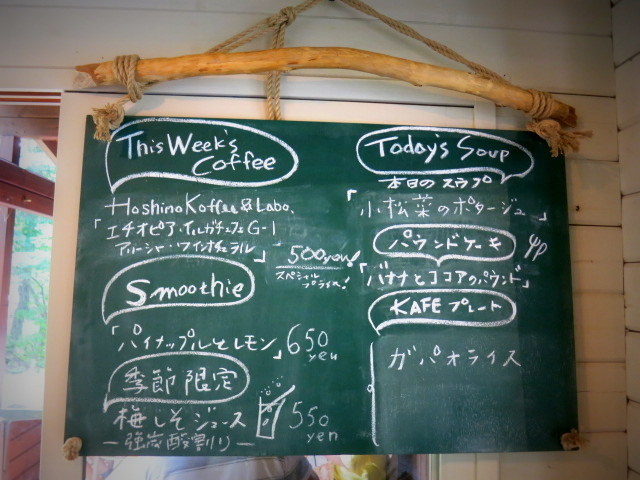 This Week's
Coffee
Hoshino Koffee & Labo.
「エチオピア・イルガチェフェG-1
アリーシャ・ワインナチュラル」
500yen!
スペシャル
プライス!
Smoothie
「パイナップルとレモン」650
yen
季節限定
梅しそジュース 550
yen
－強炭酸割り－
Today's Soup
本日のスウプ
「小松菜のポタージュ」
パウンドケーキ
「バナナとココアのパウンド」
KAFEプレート
ガパオライス